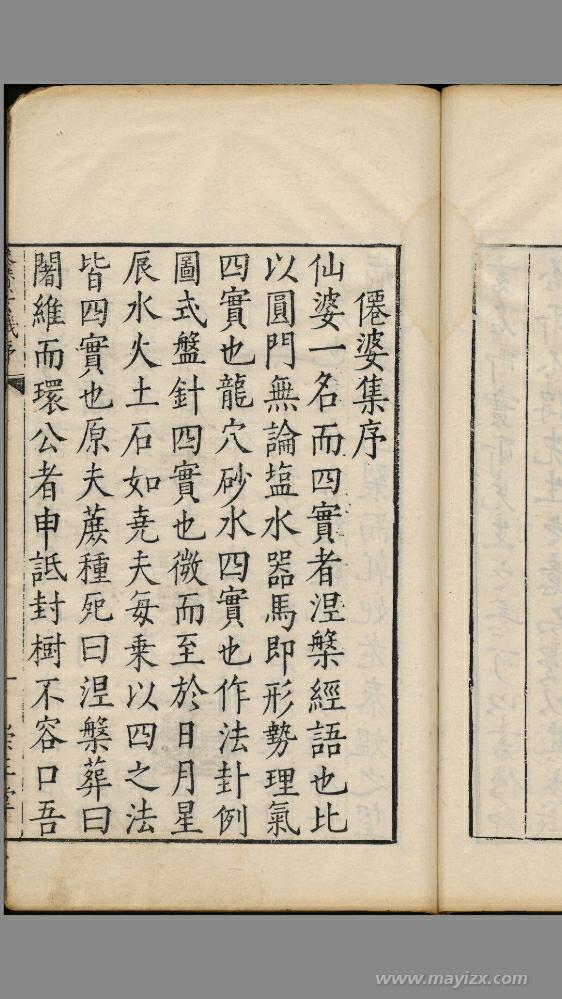 僊婆集序
仙婆一名而四實者涅槃經語也比
以圓門無論塩水器馬即形勢理氣
四實也龍穴砂水四實也作法卦例
圖式盤針四實也微而至於日月星
辰水火土石如堯夫每乗以四之法
皆四實也原夫蕨種死曰涅槃葬曰
闍維而環公者申詆封樹不容口吾
www.mayizx.com